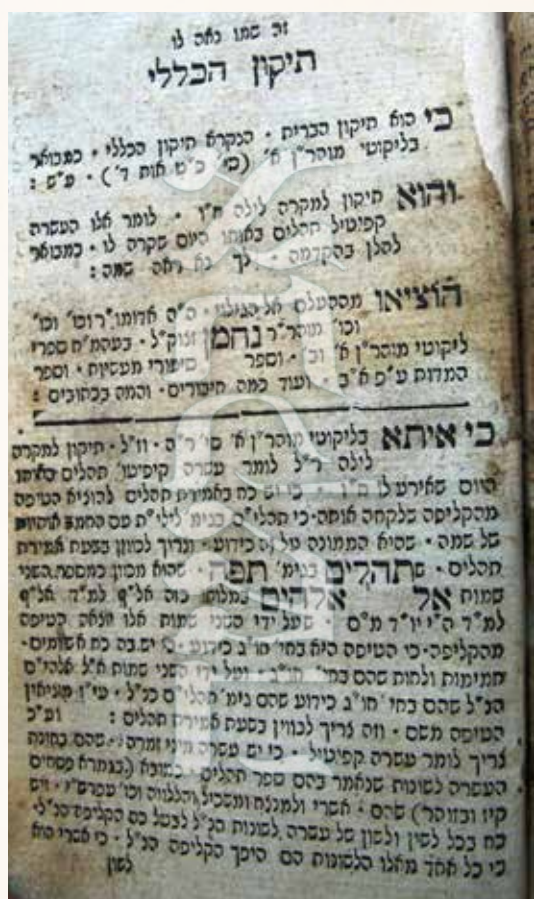 זה שמו נאה לו
תיקון הכללי
כי הוא תיקון הברית · הנקרא תיקון הכללי · כמבואר
בליקוטי מוהר"ן א' (סי' כ"ט אות ד') · ע"ש :
והוא תיקון למקרה לילה ח"ו · לומר אלו העשרה
קפיטיל תהלים באותו היום שקרה לו · כמבואר
להלן בהקדמה · נא ראה שמה :
הוציאו מההעלם אל הגילוי · ה"ה אדומו"ר וכו' וכו'
וכו' מוהר"ר נחמן זצוק"ל · בעהמ"ח ספרי
ליקוטי מוהר"ן א' וב' · וספר סיפורי מעשיות · וספר
המדות ע"פ א"ב · ועוד כמה חיבורים · והמה בכתובים :
כי איתא בליקוטי מוהר"ן א' סי' ר"ה · וז"ל · תיקון למקרה
לילה ר"ל לומר עשרה קיפיטו' תהלים באותו
היום שאירע לו ח"ו · כי יש כח באמירת תהלים להוציא הטיפה
מהקליפה שלקחה אותה · כי תהלי"ם בגימ' לילי"ת עם החמש אותיות
של שמה · שהיא הממונה על זה כידוע · וצריך לכוון בשעת אמירת
תהלים · שתהלים בגימ' תפה · שהוא מכוון כמספר השני
שמות אל אלהים במלואו כזה אל"ף למ"ד אל"ף
למ"ד ה"י יו"ד מ"ם · שעל ידי השני שמות אלו יוצאה הטיפה
מהקליפה · כי הטיפה היא בחי' חו"ג כידוע · כי יש בה כח אש ומים ·
חמימות ולחות שהם בחי' חו"ג · ועל ידי השני שמות א"ל אלהי"ם
הנ"ל שהם בחי' חו"ג כידוע שהם גימ' תהלי"ם כנ"ל · עי"ז מוציאין
הטיפה משם · וזה צריך לכווין בשעת אמירת תהלים : וע"כ
צריך לומר עשרה קפיטיל · כי יש עשרה מיני זמרה · שהם בחינת
העשרה לשונות שנאמר בהם ספר תהלים · (בגמרא פסחים
קיז ובזוהר) שהם · אשרי ולמנצח ומשכיל והללויה וכו' עפרש"י · ויש
כח בכל לשון ולשון של עשרה לשונות הנ"ל לבטל כח הקליפה הנ"ל ·
כי כל אחד מאלו הלשונות הם היפך הקליפה הנ"ל · כי אשרי הוא
לשון